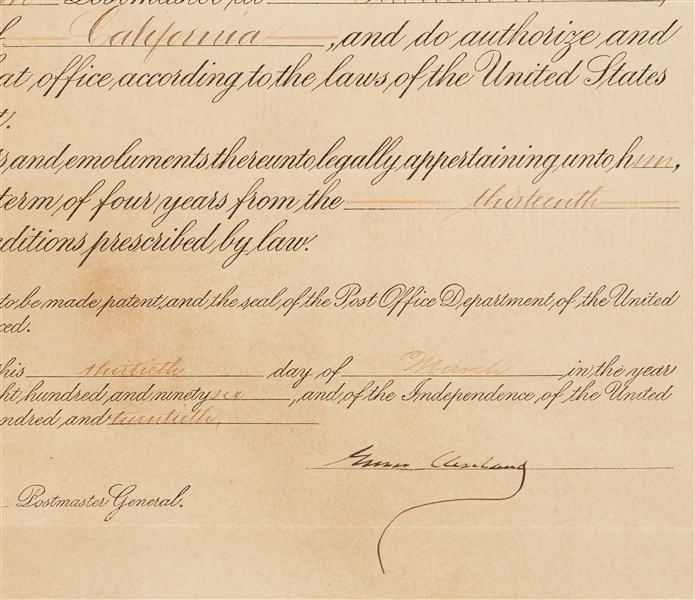 Postmaster at
California, and do authorize and
at office, according to the laws of the United States
t.
s and emoluments thereunto legally appertaining unto him,
term of four years from the thirteenth
ditions prescribed by law.
to be made patent, and the seal, of the Post Office Department, of the United
ced.
his thirtieth day of March in the year
ht hundred and ninety six, and of the Independence, of the United
ndred and twentieth.
Grover Cleveland
Postmaster General.